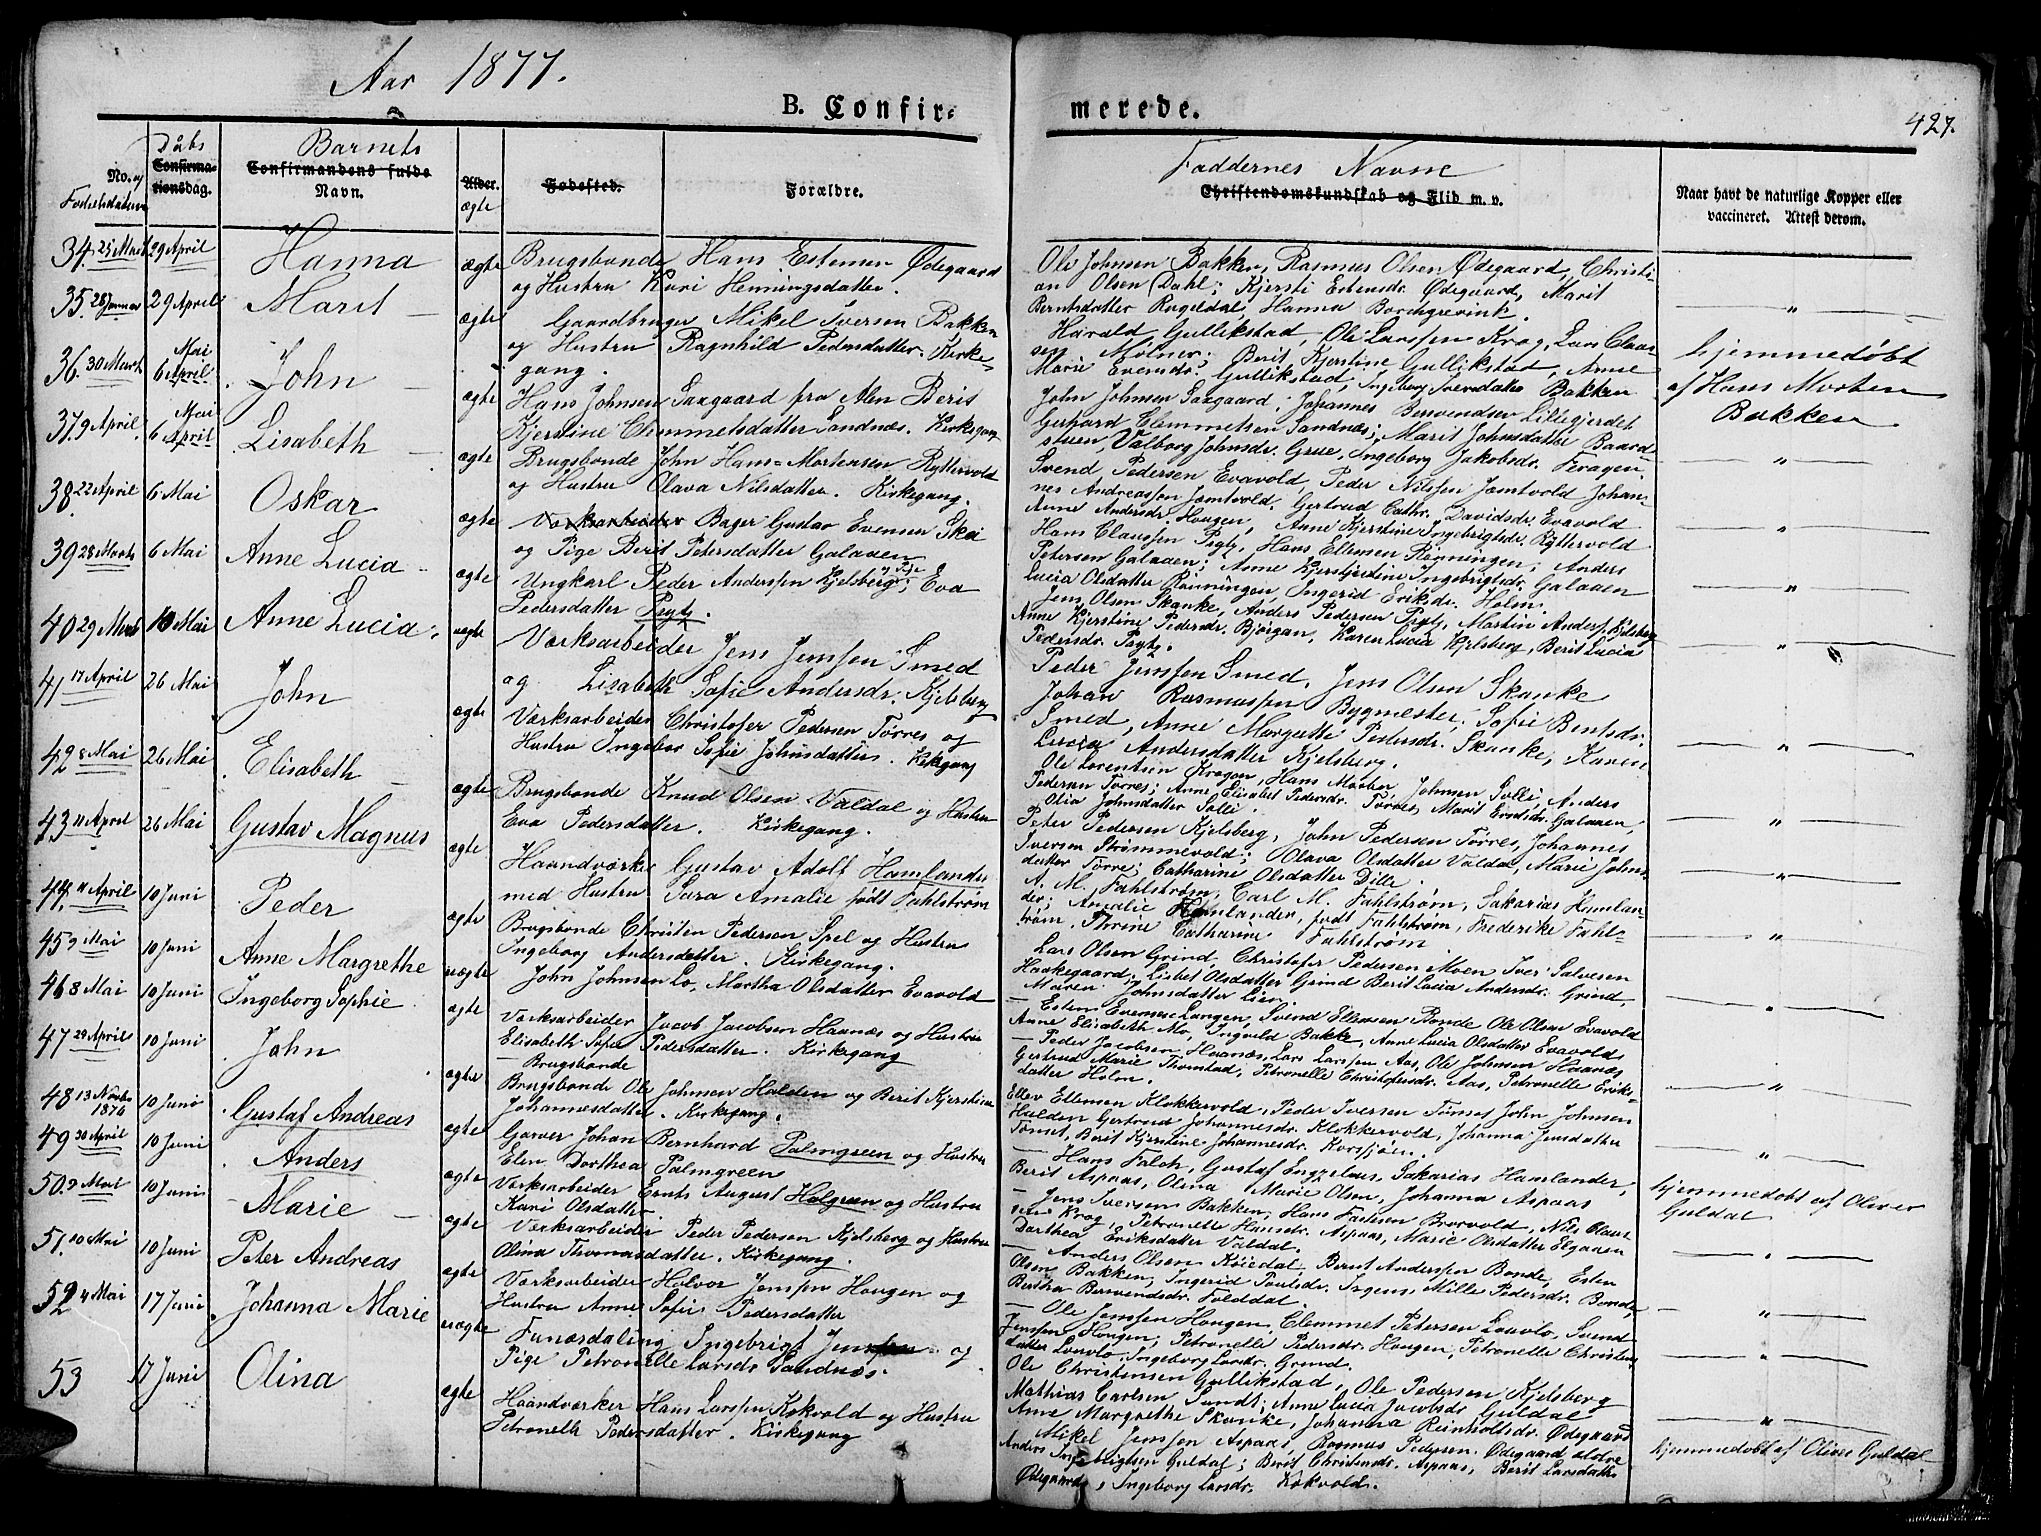 Aar 1877.
B. Confir-
merede.
427.
No. og Fødselsdatum
Dåbs
Confirma-
tionsdag.
Barnets
Confirmandens fulde
Navn.
Alder.
ægte
Fødested.
Forældre.
Faddernes Navne
Christendomskundskab og Flid m. v.
Naar havt de naturlige Kopper eller
vaccineret. Attest derom.
34. 25 Marts 29 April Hanna ægte Brugsbonde Hans Estensen Ødegaard
og Hustru Kari Henningsdatter.
Ole Johnsen Bakken, Rasmus Olsen Ødegaard, Christi-
an Olsen Dahl; Kjersti Estensdr. Ødegaard, Marit
Berntsdatter Rugeldal, Hanna Borchgrevink.
35. 28 Januar 29 April Marit ægte Gaardbruger Mikel Iversen Bakken
og Hustru Ragnhild Pedersdatter. Kirke-
gang.
Harald Gullikstad, Ole Larssen Krog, Lars Claus-
sen Mølner; Berit Kjerstine Gullikstad, Anne
Marie Evensdr. Gullikstad, Ingeborg Iversdatter Bakken
hjemmedøbt
af Hans Morten
Bakken
36. 30 Marts 6 April Mai John ægte Hans Johnsen Saxgaard fra Alen Berit
Kjerstine Clemmetsdatter Sandnæs. Kirkegang
John Johnsen Saxgaard, Johannes Berwendsen Lillegjerdet
Gerhard Clemmetsen Sandnæs; Marit Johnsdatter Baard-
stuen, Valborg Johnsdr. Grue, Ingeborg Jakobsdr. Feragen
37. 9 April. 6 April Mai Lisabeth ægte Brugsbonde John Hans-Mortensen Ryttervold
og Hustru Olava Nilsdatter. Kirkegang.
Svend Pedersen Evavold, Peder Nilssen Jæmtvold Johan-
nes Andreassen Jæmtvold. Gertrud Cathr. Davidsdr. Evavold
Anne Andersdr. Hougen, Anne Kjerstine Ingebrigtsdr. Ryttervold
38. 22 April 6 Mai Oskar ægte Værksarbeider Bager Gustav Evensen Skei
og Pige Berit Petersdatter Galaaen
Hans Claussen Pegtz, Hans Ellensen Rønningen; Anders
Petersen Galaaen; Anne Kjerstine Ingebrigtsdr. Galaaen
Lucia Olsdatter Rønningen, Ingerid Eriksdr. Holm.
39. 28 Marts 6 Mai Anne Lucia ægte Ungkarl Peder Anderssen Kjelsberg, og Pige Eva
Pedersdatter Pegtz.
Jens Olsen Skanke, Anders Pedersen Pegtz, Martin Anders. Kjelsberg
Anne Kjerstine Pedersdr. Bjørgan, Karen Lucia Kjelsberg, Berit Lucia
Pedersdr. Pegtz.
40. 29 Marts 10 Mai Anne Lucia uægte Værksarbeider Jens Jenssen Smed
og Lisabeth Sofie Andersdr. Kjelsberg
Peder Jenssen Smed, Jens Olsen Skanke
Johan Rasmussen Bygmester, Sofie Berntsdr.
Smed, Anne Margrethe Pedersdr. Skanke, Karen
Lucia Andersdatter Kjelsberg.
41. 17 April 26 Mai John ægte Værksarbeider Christofer Pedersen Torres og
Hustru Ingebor Sofie Johnsdatter. Kirkegang
Ole Lorentsen Kragen, Hans Morber Johnsen Solli, Anders
Pedersen Torres; Anne Elisabet Pedersdr. Torres, Marit Evensdr. Galaaen,
Olia Johnsdatter Solli.
42. 8 Mai 26 Mai Elisabeth ægte Brugsbonde Knud Olsen Valdal og Hustru
Eva Pedersdatter. Kirkegang.
Peter Pedersen Kjelsberg, John Pedersen Torres, Johannes
Iversen Strømmevold; Olava Olsdatter Valdal, Marie Johns-
datter Torre, Catharine Olsdatter Dille.
43. 11 April 26 Mai Gustav Magnus ægte Haandværker Gustav Adolf Hamlander
med Hustru Sara Amalie født Fahlstrøm
A. M. Fahlstrøm, Carl M. Fahlstrøm, Sakarias Hamlan-
der; Amalie Hamlander, født Fahlstrøm, Frederike Fahl-
strøm, Thrine Catharine Fahlstrøm
44. 11 April 10 Juni Peder ægte Brugsbonde Christen Pedersen Spel og Hustru
Ingeborg Andersdatter. Kirkegang.
Lars Olsen Grind, Christofer Pedersen Moen Iver Salvesen
Haakegaard, Lisbet Olsdatter Grind Berit Lucia Andersdr. Grind,
Maren Johnsdatter Lien.
45. 9 Mai 10 Juni Anne Margrethe uægte John Johnsen Lo, Martha Olsdatter Evavold
Esten Evensen Langen, Svend Ellensen Bonde Ole Olsen Evavold
Anne Elisabeth Mo, Ingvald Bakke, Anne Lucia Olsdatter Evavold
46. 8 Mai 10 Juni Ingeborg Sophie ægte Værksarbeider Jacob Jacobsen Haanæs og Hustru
Elisabeth Sofie Pedersdatter. Kirkegang
Peder Jacobsen Haanæs, Lars Larssen Aas, Ole Johnsen Haanæs
Gertrud Marie Thomstad, Petronelle Christofersdr. Aas, Petronelle Eriks-
datter Holm.
47. 29 April 10 Juni John ægte Brugsbonde
Brugsbonde Ole Johnsen Halden og Berit Kjerstine
Johannesdatter. Kirkegang.
Ellev Ellensen Klokkervold, Peder Iversen Tønset John Johnsen
Hulden Gertrud Johannesdr. Klokkervold, Johanna Jensdatter
Tønset, Berit Kjerstine Johannesdr. Korssjøen.
48. 13 Novbr. 1876 10 Juni Gustaf Andreas ægte Garver Johan Bernhard Palmgreen og Hustru
Elen Dorthea Palmgreen
Hans Falch, Gustaf Engzelius, Sakarias Hamlander,
Berit Aspaas, Olina Marie Olsen, Johanna Aspaas
49. 30 April 10 Juni Anders ægte Værksarbeider Ernts August Holgreen og Hustru
Kari Olsdatter.
Jens Iversen Bakken, Hans Fastesen Brovold, Nils Claus-
sen Krog, Petronelle Hansdr. Aspaas, Marie Olsdatter Elgaaen
Dorthea Eriksdatter Valdal.
hjemmedøbt af Oliver
Guldal
50. 9 Mai 10 Juni Marie ægte Værksarbeider Peder Pedersen Kjelsberg og Hustru
Olina Thomasdatter. Kirkegang.
Anders Olsen Kojedal, Bernt Anderssen Bonde, Esten
Olsen Bakken, Ingerid Paulsdr. Ingens, Mille Pedersdr. Bonde,
Bertha Berwendsdr. Folddal.
51. 10 Mai 10 Juni Peter Andreas ægte Værksarbeider Halvor Jenssen Hougen og
Hustru Anne Sofie Pedersdatter
Ole Jenssen Hougen, Clemmet Petersen Louvlo, Svend
Jenssen Hougen, Petronelle Pedersdr. Hougen, Petronelle Christens-
datter Louvlo, Ingeborg Larsdr. Grind.
52. 4 Mai 17 Juni Johanna Marie uægte Funæsdaling Ingebrigt Jenssen og
Pige Petronelle Larsdr. Sandnæs.
Ole Christensen Gullikstad, Ole Pedersen Kjelsberg
Mathias Carlsen Sundt; Anne Lucia Jacobsdr. Guldal
Anne Margrethe Skanke, Johanna Reinholtsdr. Ødegaard
53 17 Juni Olina ægte Haandværker Hans Larssen Kokvold og Hustru
Petronelle Pedersdatter. Kirkegang
Mikel Jenssen Aspaas, Rasmus Pedersen Ødegaard store
Anders Ingebrigtsen Guldal; Berit Christensdr. Aspaas, Berit Larsdatter
Ødegaard, Ingeborg Larsdr. Kokvold.
hjemmedøbt af Oliver Guldal